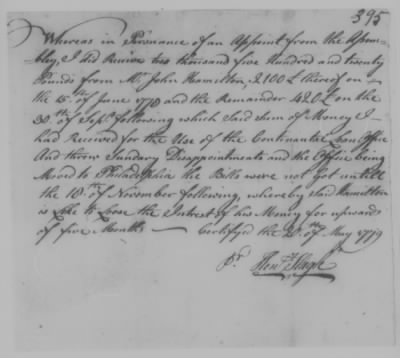 395
Whereas in Persuance of an Appoint from the Assem-
-bly, I did Receive two thousand five Hundred and twenty
Pounds from Mr John Hamilton, 2100£ thereof on
the 15th of June 1778 and the Remainder 420£ on the
30th of Sept following which said sum of Money I
had Received for the Use of the Continantal Loan Office
And threw Sundary Disappointments and the Office being
Moved to Philadelphia the Bills were not got until
the 18th of November following, whereby said Hamilton
is Like to Loose the Intrest of his Money for upwards
of five Months — Certifyed the of May 1779
Pr Henry Slagle